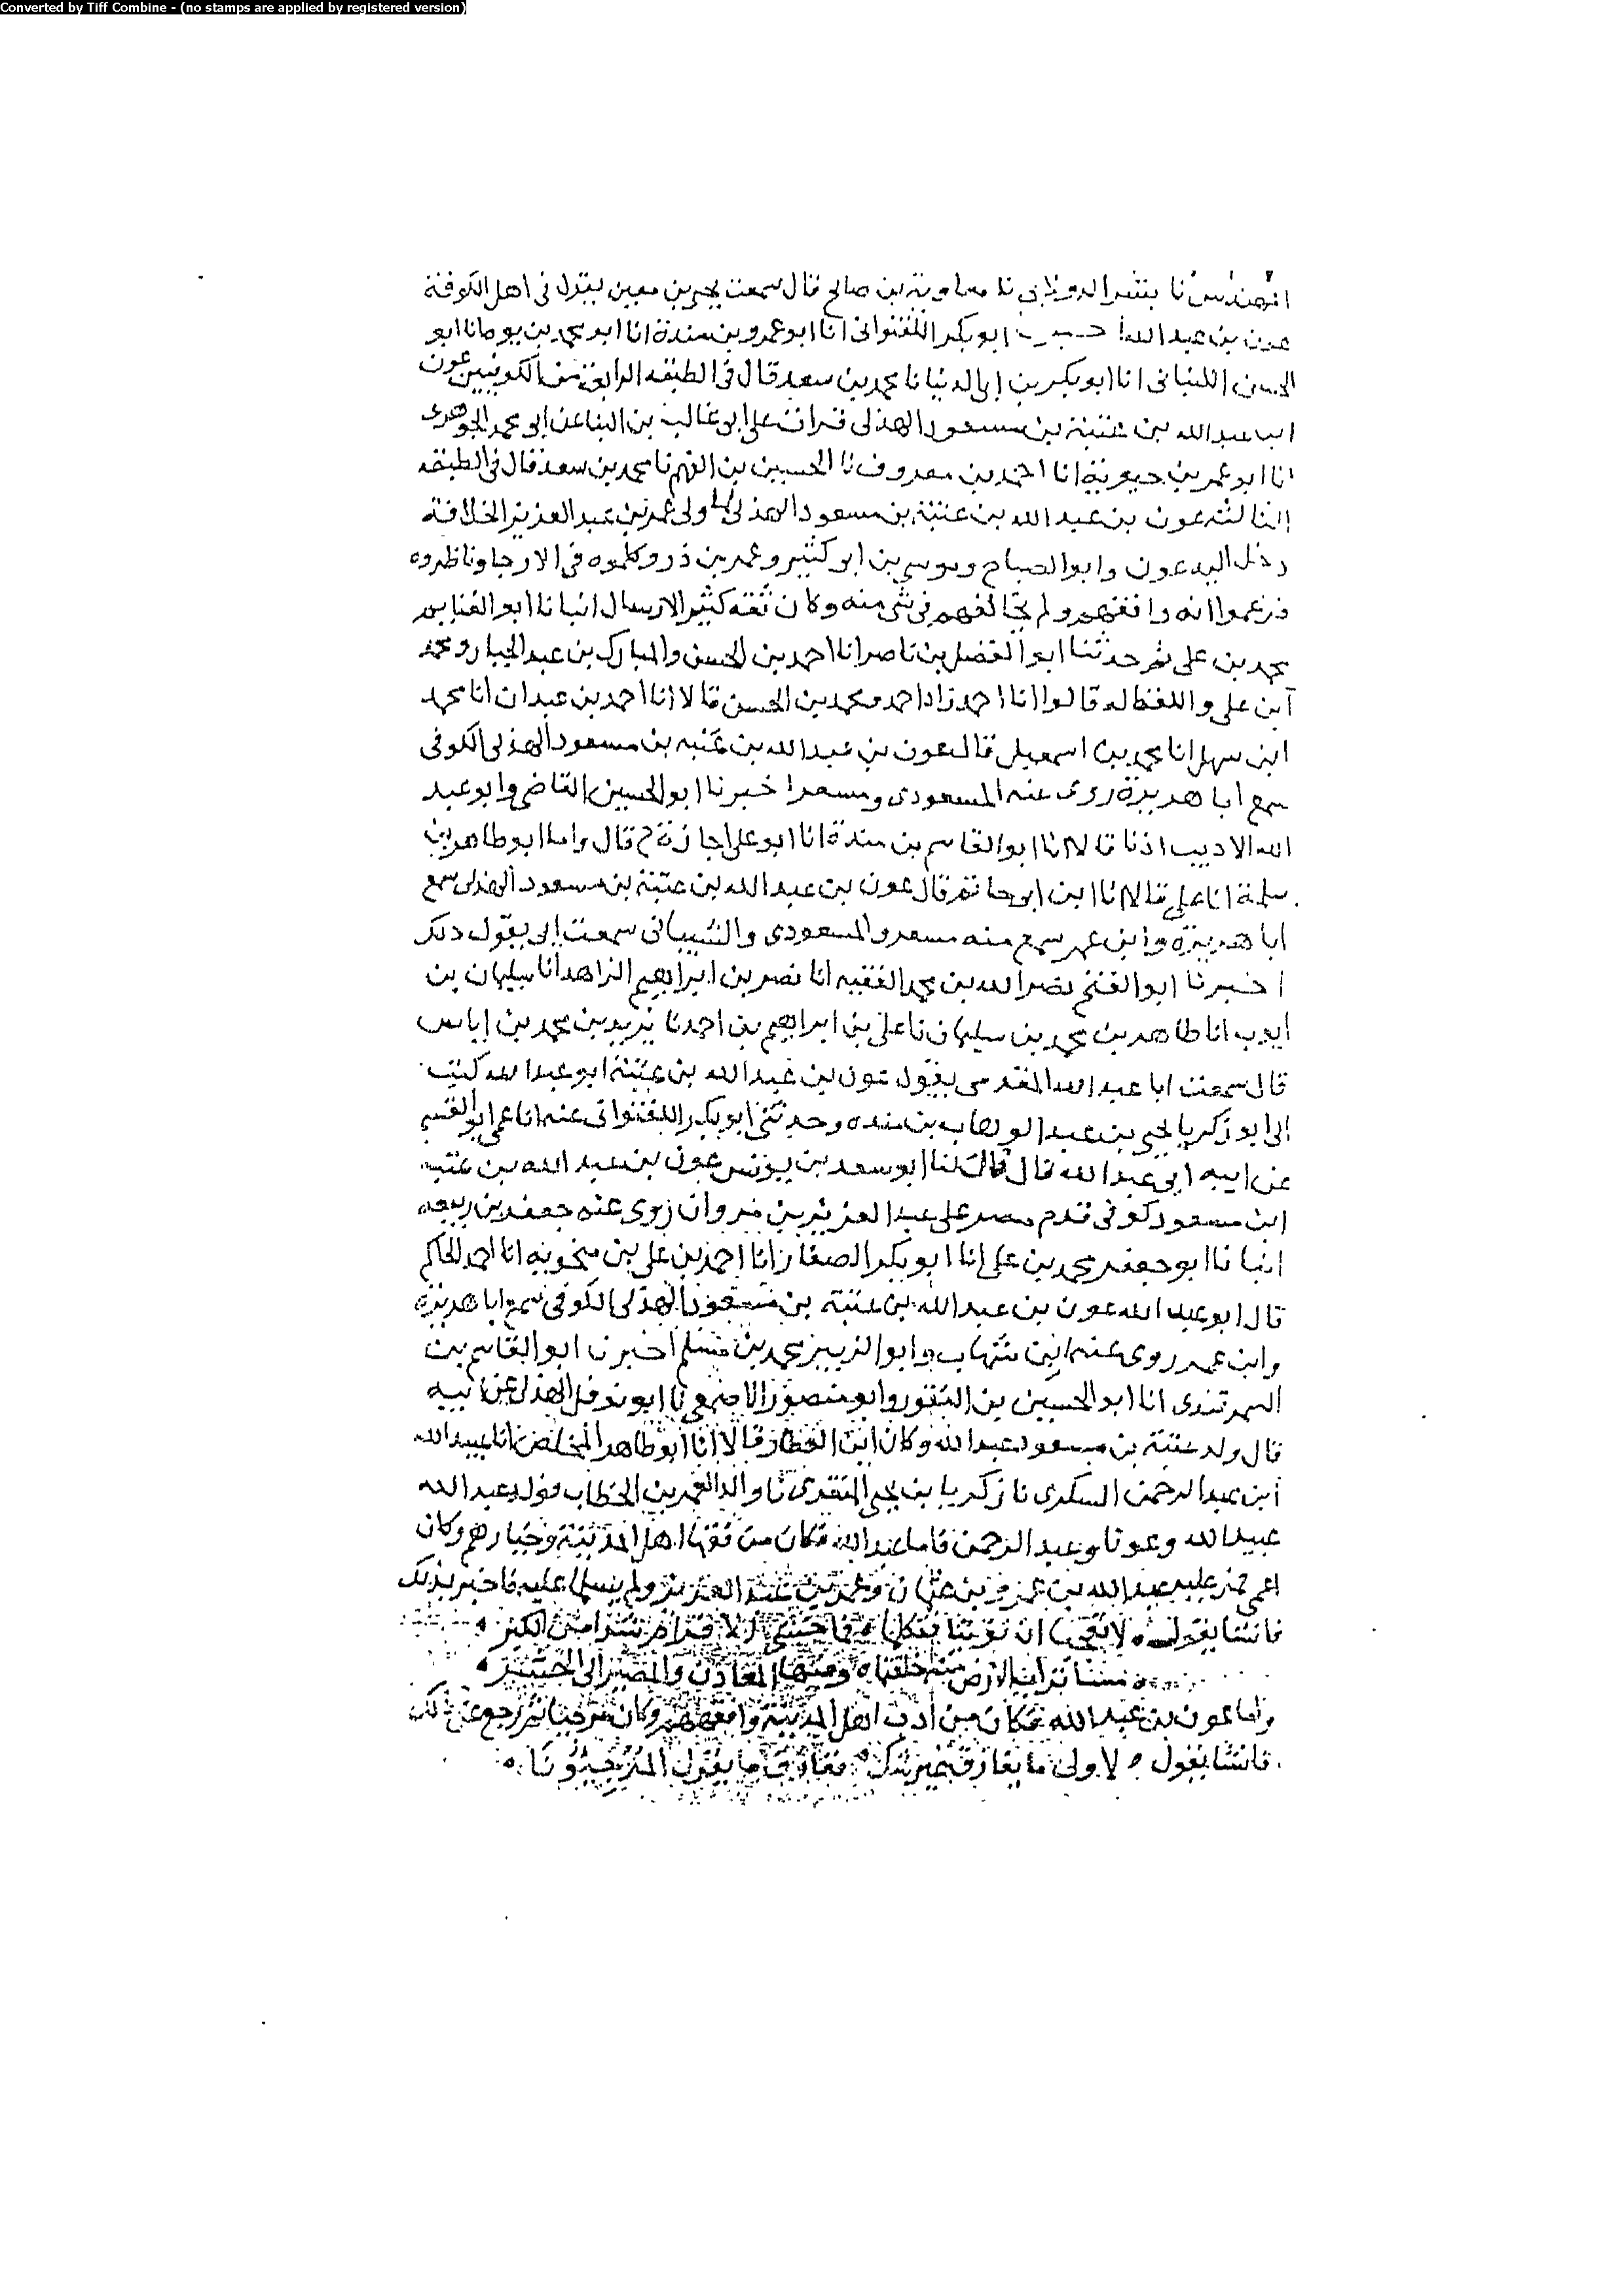 Converted by Tiff Combine - (no stamps are applied by registered version)
المهندس نا بشر الدولابى نا معاوية بن صالح قال سمعت يحيى بن معين يقول فى اهل الكوفة
عون بن عبد الله ابو بكر اللفتوانى انا ابو عمرو بن مندة انا ابو محمد بن يوه انا ابو
الحسن اللبنانى انا ابو بكر بن ابى الدنيا نا محمد بن سعد قال فى الطبقه الرابعة من الكوفيين عون
ابن عبد الله بن عتبة بن مسعود الهذلى قرات على ابى غالب بن البنا عن ابى محمد الجوهرى
انا ابو عمر بن حيوية انا احمد بن معروف نا الحسين بن الفهم نا محمد بن سعد قال فى الطبقه
الثالثه عون بن عبد الله بن عتبة بن مسعود الهذلى لما ولى عمر بن عبد العزيز الخلافة
دخل اليه عون وابو الصباح وموسى بن ابو كثير وعمر بن ذر وكلموه فى الارجا وناظروه
فزعموا انه وافقهم ولم يخالفهم فى شى منه وكان ثقه كثير الارسال انبانا ابو الغنايم
محمد بن على ثم حدثنا ابو الفضل بن ناصر انا احمد بن الحسن والمبارك بن عبد الجبار ومحمد
ابن على واللفظ له قالوا انا احمد زاد احمد ومحمد بن الحسن قالا انا احمد بن عبدان انا محمد
ابن سهل انا محمد بن اسمعيل قال عون بن عبد الله بن عتبه بن مسعود الهذلى الكوفى
سمع ابا هريرة روى عنه المسعودى ومسعر اخبرنا ابو الحسين القاضى وابو عبد
الله الاديب اذنا قالا انا ابو القاسم بن مندة انا ابو على اجازة ح قال واما ابو طاهر بن
سلمة انا على قالا انا ابن ابو حاتم قال عون بن عبد الله بن عتبة بن مسعود الهذلى سمع
ابا هريرة وابن عمر سمع منه مسعر والمسعودى والشيبانى سمعت ابى يقول ذلك
اخبرنا ابو الفتح نصر الله بن محمد الفقيه انا نصر بن ابراهيم الزاهد انا سليمان بن
ايوب انا طاهر بن محمد بن سليمان نا على بن ابراهيم بن احمد نا يزيد بن محمد بن اياس
قال سمعت ابا عبد الله المقدمى يقول عون بن عبد الله بن عتبة ابو عبد الله كتب
الى ابو زكريا يحيى بن عبد الوهاب بن منده وحدثنى ابو بكر اللفتوانى عنه انا عمى ابو القسم
عن ابيه ابى عبد الله قال قال لنا ابو سعد بن يونس عون بن عبد الله بن عتبه
ابن مسعود كوفى قدم مصر على عبد العزيز بن مروان روى عنه جعفر بن ربيعه
انبانا ابو جعفر محمد بن على انا ابو بكر الصفار انا احمد بن على بن منجويه انا احمد الحاكم
قال ابو عبد الله عون بن عبد الله بن عتبة بن مسعود الهذلى الكوفى سمع ابا هريرة
وابن عمر روى عنه ابن شهاب وابو الزبير محمد بن مسلم اخبرنا ابو القاسم بن
السمرقندى انا ابو الحسين بن النقور وابو منصور الاصمعى نا ابو نوفل الهذلى عن ابيه
قال ولد عتبة بن مسعود عبد الله وكان ابن العطار قالا انا ابو طاهر المخلص انا عبيد الله
ابن عبد الرحمن السكرى نا زكريا بن يحيى المنقرى نا والد العمر بن الخطاب فولد عبد الله
عبيد الله وعونا وعبد الرحمن فاما عبد الله فكان من فقها اهل المدينة وخيارهم وكان
اعمى فمر عليه عبد الله بن عمرو بن عثمان وعمر بن عبد العزيز ولم يسلما عليه فاخبر بذلك
فانشا يقول لا تعجبا ان تؤتيا فتكلما فما حشى الاقوام شرا من الكبر
مسا تراب الارض منه خلقتما ومنها المعاد والمصير الى الحشر
واما عون بن عبد الله فكان من ادب اهل المدينة وافقههم وكان مرجيا ثم رجع عن ذلك
فانشا يقول لاول ما يفارق غير شك يفارق ما يقول المرجيونا